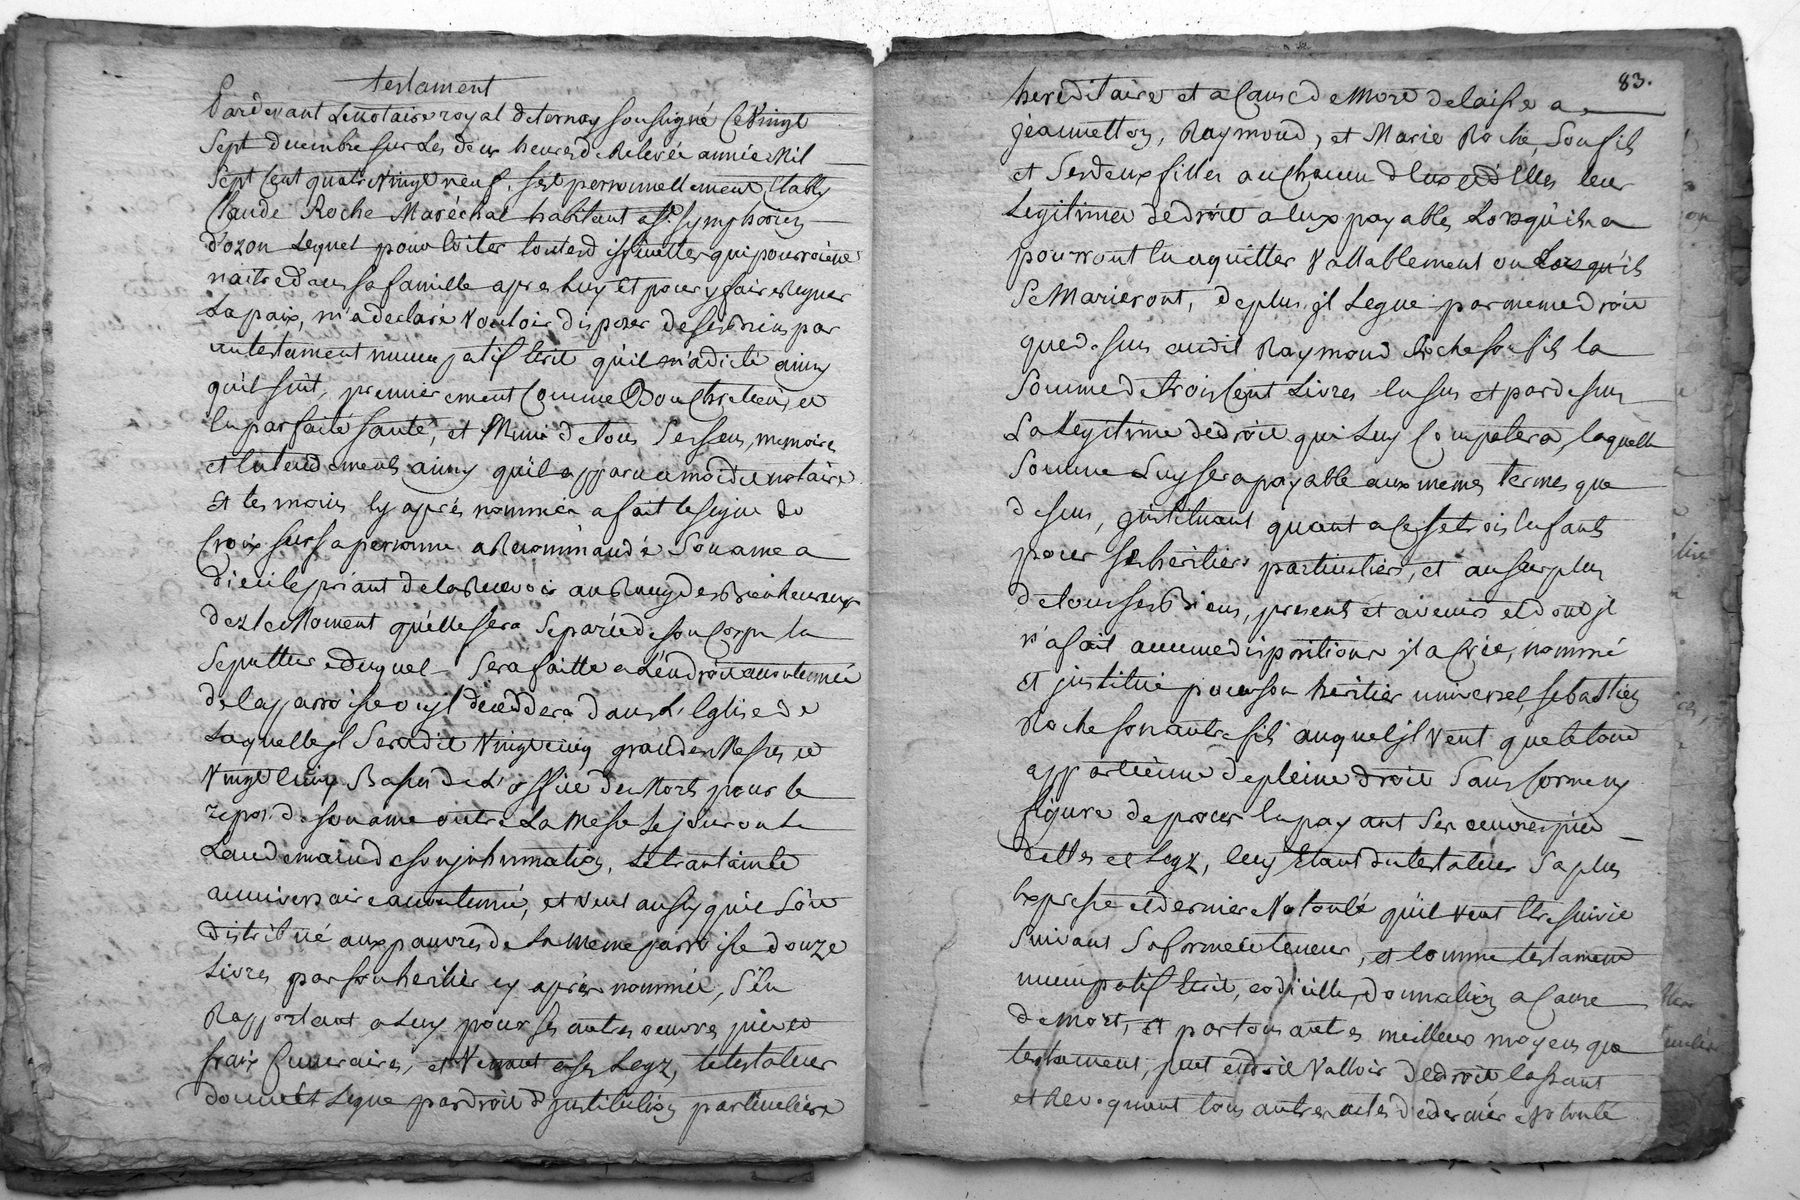 testament
Pardevant Le notaire royal de ternay soussigné Ce Vingt
Sept decembre sur Les deux heures de Relevée année Mil
Sept Cent quatre Vingt neuf. sest personnellement Etably
Claude Roche Maréchal habitant a St Symphorien
d'ozon Lequel pour Eviter toutes dissentions qui pourroient
naitre dans sa famille apres Luy Et pour y faire Regner
La paix, m'a declaré Vouloir disposer de ses Biens par
un testament nuncupatif Ecrit qu'il m'a dicté ainsy
qu'il suit, premierement Comme Bon Chretien, et
En parfaite santé, et Muni de tous Ses sens, memoire
et Entendement ainsy qu'il a apparu a moi dit notaire
Et temoins Cy aprés nommés a fait le signe de
Croix sur sa personne a Recommandé Son ame a
Dieu le priant de la Recevoir au Rang des Bienheureux
dez le Moment qu'elle sera Separée de son Corps la
Sepulture duquel Sera faitte a L'endroit accoutumé
de la parroisse ou il decedera dans L'Eglise de
Laquelle il Sera dit Vingt cinq grandes Messes et
Vingt cinq Basses de L'office des Morts pour le
repos de son ame outre La Messe le jour ou Le
Lendemain de son inhumation, Le trantain et
anniversaire accoutumé, et veut aussy qu'il Soit
distribué aux pauvres de La meme parroisse douze
Livres par son heritier cy aprés nommé, S'en
Rapportant a Luy pour ses autres oeuvres pies et
frais funeraires, et Venant a ses Legz, le testateur
donne Et Legue par droit d'institution particuliere
83.
hereditaire et a Cause de Mort delaisse a
jeannetton, Raymond, et Marie Roche, Son fils
et Ses deux filles a un Chacun d'Eux et d'Elles leur
Legitime de droit a Eux payable Lorsqu'ils
pourront En quitter Vallablement ou Lorsqu'ils
Se Marieront, de plus il Legue par meme droit
que dessus audit Raymond Roche son fils la
Somme de trois Cent Livres En sus et par dessus
La Legitime de droit qui Luy Competera, laquelle
Somme Luy sera payable aux memes termes que
dessus, instituant quant a ce ses trois Enfants
pour ses heritiers particuliers, et au surplus
de tous ses Biens, presents et avenir et dont il
n'a fait aucune disposition il a Créé, nommé
Et institué pour son heritier universel, sebastien
Roche son autre fils auquel il veut que le tout
appartienne de plein droit Sans forme ny
figure de procés En payant Ses oeuvres pies
dettes et Legz, Cecy Etant du testateur Sa plus
Expresse et derniere Volonté qu'il veut Etre suivie
Suivant Sa forme et teneur, et Comme testament
nuncupatif Ecrit, codicille, donnation a Cause
de Mort, Et par tous autres meilleurs moyens que
testament, peut et doit Valloir de droit Cassant
et Revoquant tous autres actes de derniere Volonté